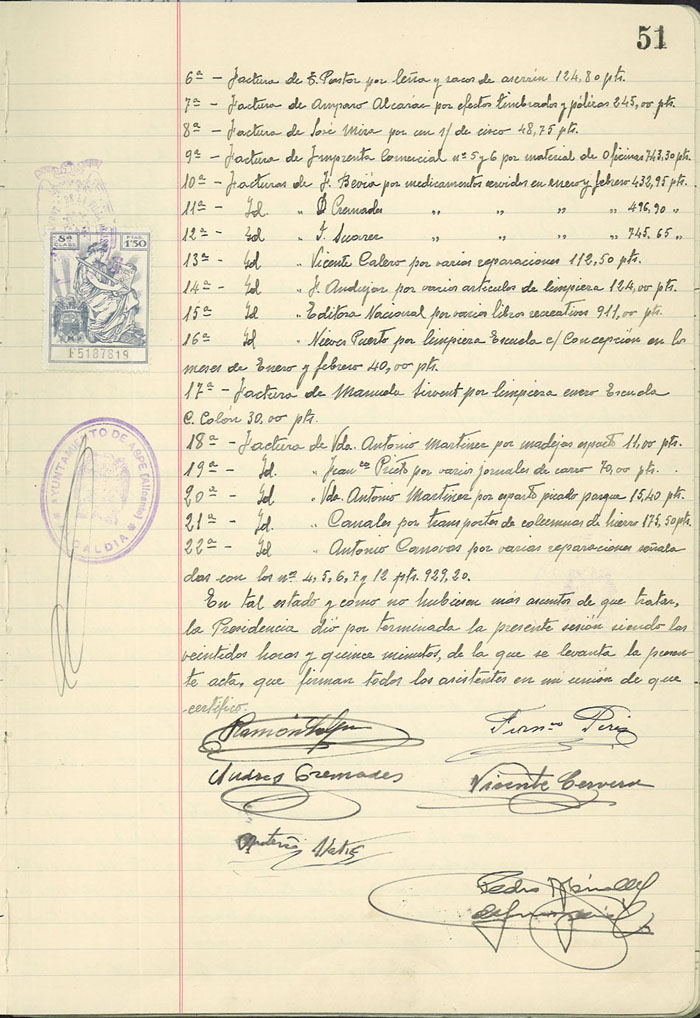 51
6ª - Factura de E. Pastor por leña y sacos de aserrín 124,80 pts.
7ª - Factura de Amparo Alcaráz por efectos timbrados y pólizas 245,00 pts.
8ª - Factura de José Mira por un s/ de cinco 48,75 pts.
9ª - Factura de Imprenta Comercial nº 5 y 6 por material de Oficinas 743,30
10ª - Facturas de J. Beviá por medicamentos servidos en enero y febrero 432,95 pts.
11ª - Id „ D. Cremades „ „ „ „ 496,90 „
12ª - Id „ J. Suarez „ „ „ „ 745,65 „
13ª - Id „ Vicente Calero por varias reparaciones 112,50 pts.
14ª - Id „ J. Andujar por varios artículos de limpieza 124,00 pts.
15ª - Id „ Editora Nacional por varios libros recreativos 911,00 pts.
16ª - Id „ Nieves Puerto por limpieza Escuela c/ Concepción en los
meses de Enero y febrero 40,00 pts.
17ª - Factura de Manuela Sirvent por limpieza enero Escuela
C. Colón 30,00 pts.
18ª - Factura de Vda. Antonio Martinez por madejas esparto 11,00 pts.
19ª - Id. „ Franco Prieto por varios jornales de carro 70,00 pts.
20ª - Id „ Vda. Antonio Martínez por esparto picado parque 15,40 pts.
21ª - Id. „ Canales por transportes de columnas de hierro 175,50 pts.
22ª - Id „ Antonio Canovas por varias reparaciones señala
das con los nº 4, 5, 6, 7 y 12 pts. 929,20.
En tal estado y como no hubiesen más asuntos de que tratar,
la Presidencia dió por terminada la presente sesión siendo las
veintidos horas y quince minutos, de la que se levanta la presen-
te acta, que firman todos los asistentes en mi unión de que
certifico.
8ª CLASE PTAS. 1'50
F5187819
AYUNTAMIENTO DE ASPE (Alicante)
ALCALDIA
Ramón
Andres Cremades
Vicente Cervera
Pedro